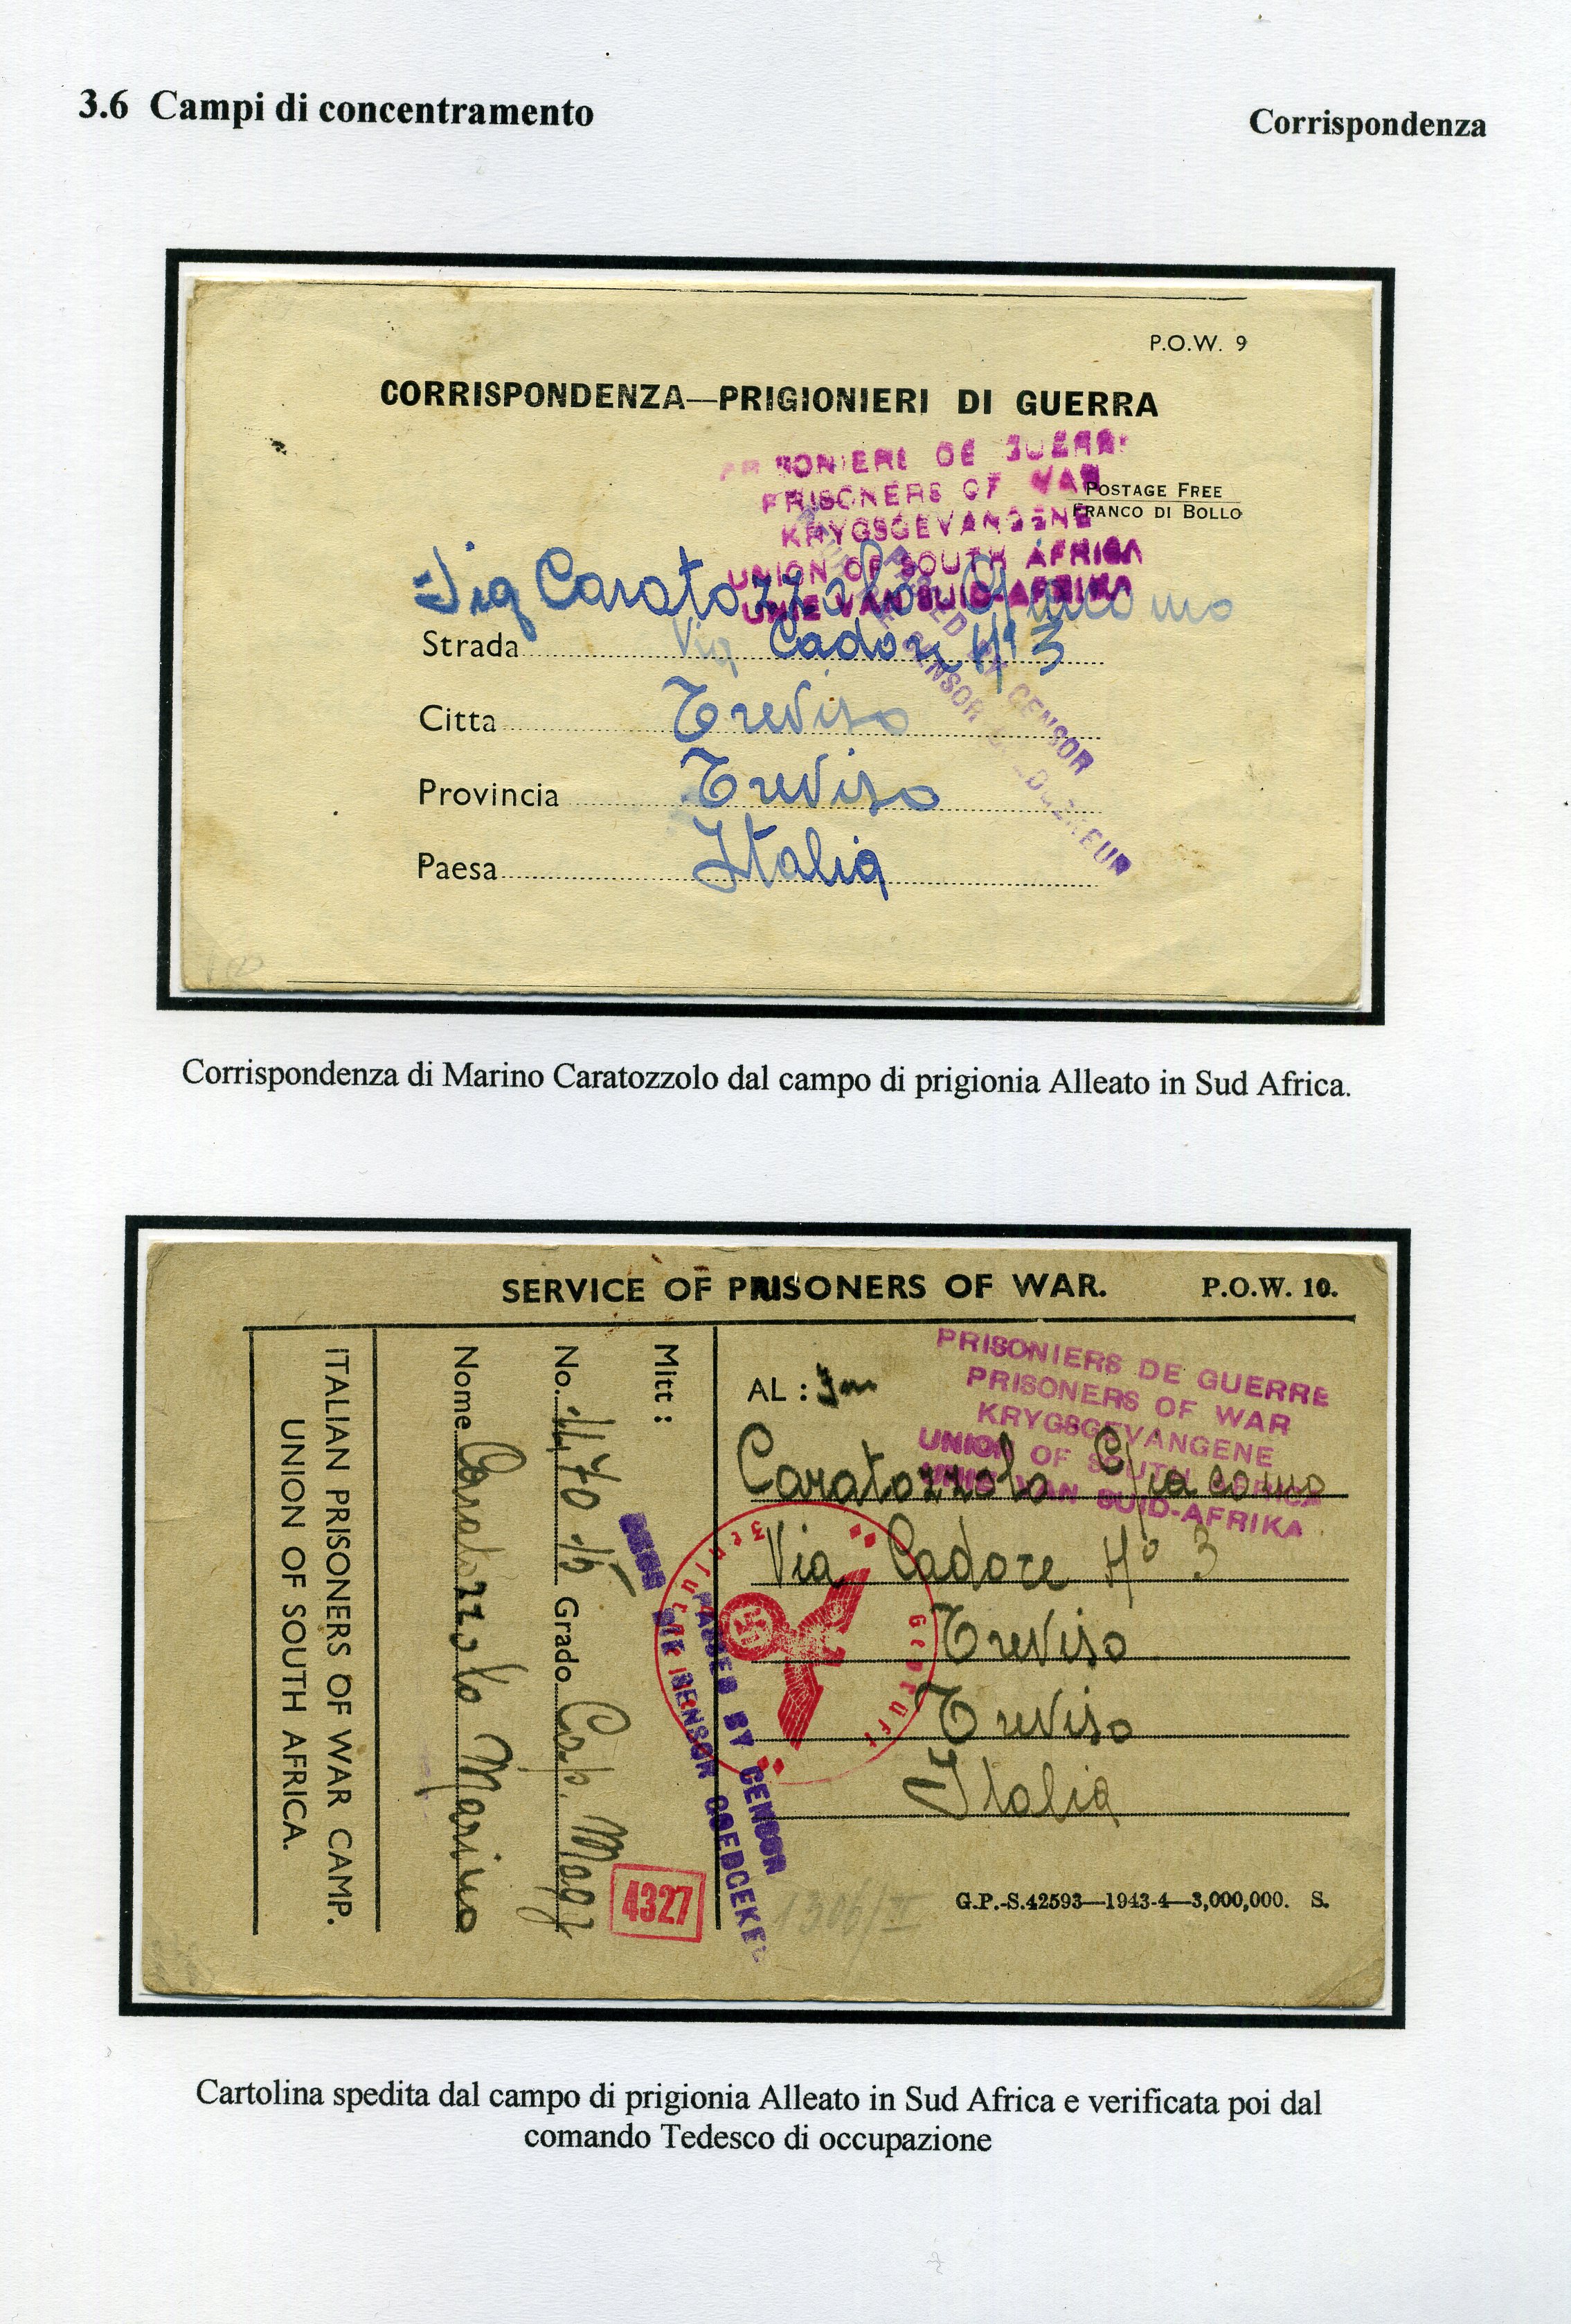 3.6 Campi di concentramento
Corrispondenza
P.O.W. 9
CORRISPONDENZA—PRIGIONIERI DI GUERRA
PRISONERS OF WAR
KRYGSGEVANGENE
UNION OF SOUTH AFRICA
UNIE VAN SUID-AFRIKA
POSTAGE FREE
FRANCO DI BOLLO
Sig Caratozzolo Giacomo
Strada Via Cadore N° 3
Citta Treviso
Provincia Treviso
Paesa Italia
CENSOR
Corrispondenza di Marino Caratozzolo dal campo di prigionia Alleato in Sud Africa.
SERVICE OF PRISONERS OF WAR.
P.O.W. 10.
PRISONIERS DE GUERRE
PRISONERS OF WAR
KRYGSGEVANGENE
UNION OF SOUTH AFRICA
UNIE VAN SUID-AFRIKA
AL :
Caratozzolo Giacomo
Via Cadore N° 3
Treviso
Treviso
Italia
G.P.-S.42593—1943-4—3,000,000. S.
Mitt :
No. Grado Cap. Magg
Nome Caratozzolo Marino
ITALIAN PRISONERS OF WAR CAMP.
UNION OF SOUTH AFRICA.
PASSED BY CENSOR
DEUR DIE SENSOR GOEDGEKEUR
Geprüft
4327
1306/I
Cartolina spedita dal campo di prigionia Alleato in Sud Africa e verificata poi dal
comando Tedesco di occupazione